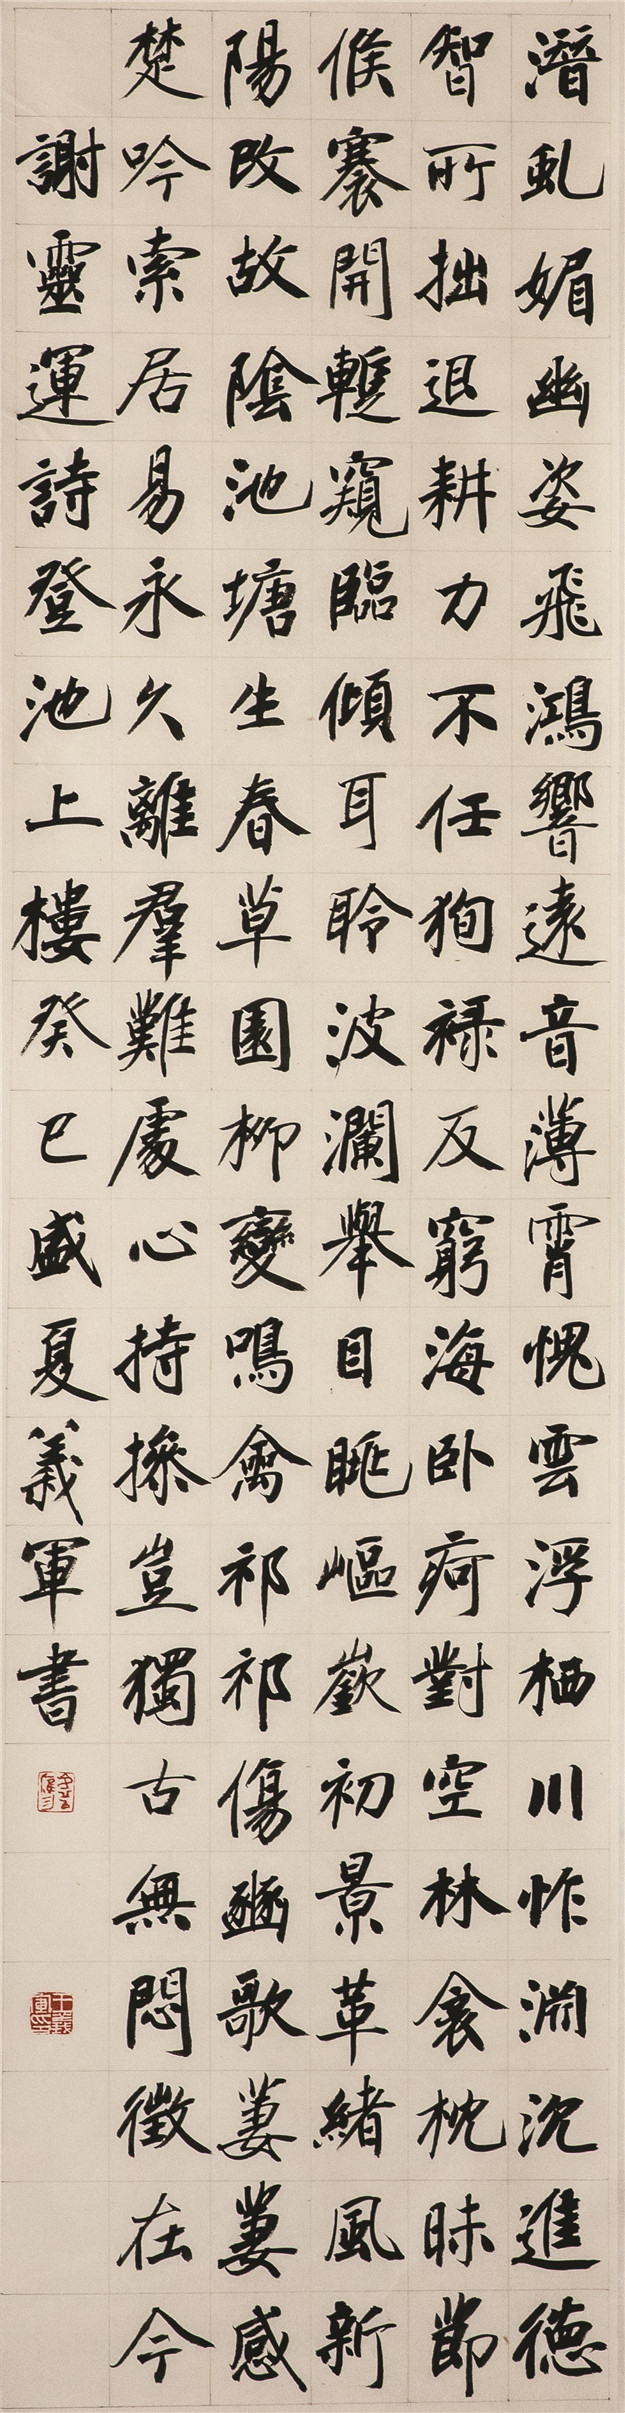 潛虬媚幽姿飛鴻響遠音薄霄愧雲浮栖川怍淵沈進德
智所拙退耕力不任狥祿反窮海卧痾對空林衾枕昧節
候褰開暫窺臨傾耳聆波瀾舉目眺嶇嶔初景革緒風新
陽改故陰池塘生春草園柳變鳴禽祁祁傷豳歌萋萋感
楚吟索居易永久離羣難處心持操豈獨古無悶徵在今
謝靈運詩登池上樓癸巳盛夏義軍書
王義軍印